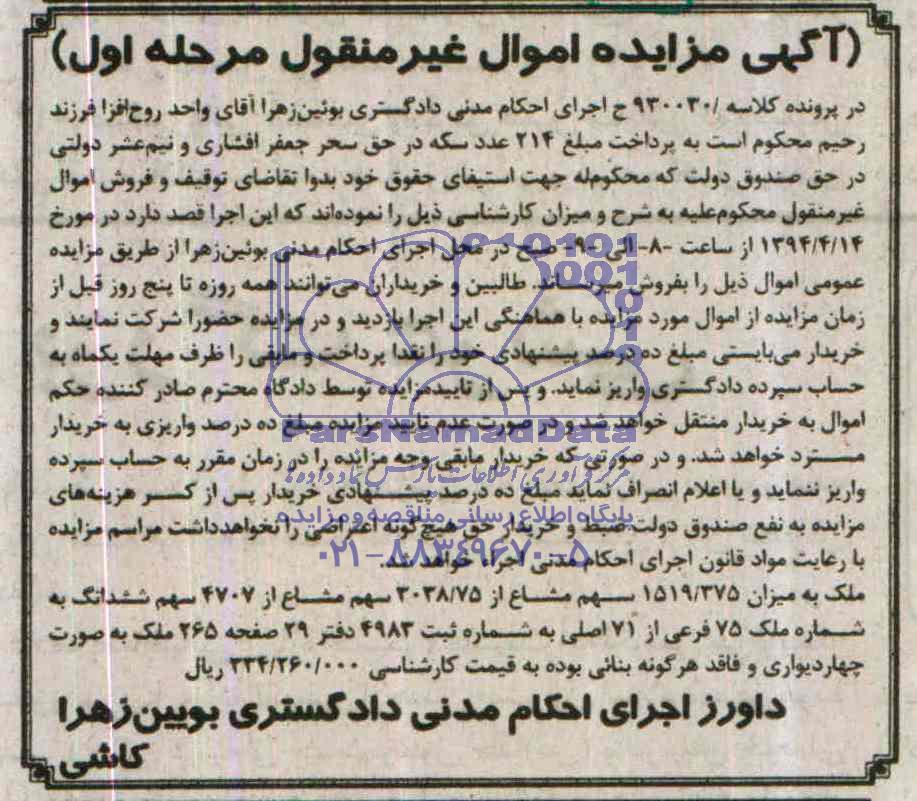 (آگهی مزایده اموال غیرمنقول مرحله اول)
در پرونده کلاسه /۹۳۰۰۳۰ ح اجرای احکام مدنی دادگستری بوئین‌زهرا آقای واحد روح‌افزا فرزند
رحیم محکوم است به پرداخت مبلغ ۲۱۴ عدد سکه در حق سحر جعفر افشاری و نیم‌عشر دولتی
در حق صندوق دولت که محکوم‌له جهت استیفای حقوق خود بدوا تقاضای توقیف و فروش اموال
غیرمنقول محکوم‌علیه به شرح و میزان کارشناسی ذیل را نموده‌اند که این اجرا قصد دارد در مورخ
۱۳۹۴/۴/۱۴ از ساعت -۸- الی -۹- صبح در محل اجرای احکام مدنی بوئین‌زهرا از طریق مزایده
عمومی اموال ذیل را بفروش میرساند. طالبین و خریداران می‌توانند همه روزه تا پنج روز قبل از
زمان مزایده از اموال مورد مزایده با هماهنگی این اجرا بازدید و در مزایده حضورا شرکت نمایند و
خریدار می‌بایستی مبلغ ده درصد پیشنهادی خود را نقدا پرداخت و مابقی را ظرف مهلت یکماه به
حساب سپرده دادگستری واریز نماید. و پس از تاییدمزایده توسط دادگاه محترم صادر کننده حکم
اموال به خریدار منتقل خواهد شد و در صورت عدم تایید مزایده مبلغ ده درصد واریزی به خریدار
مسترد خواهد شد. و در صورتی که خریدار مابقی وجه مزایده را در زمان مقرر به حساب سپرده
واریز ننماید و یا اعلام انصراف نماید مبلغ ده درصد پیشنهادی خریدار پس از کسر هزینه‌های
مزایده به نفع صندوق دولت ضبط و خریدار حق هیچ گونه اعتراضی را نخواهدداشت مراسم مزایده
با رعایت مواد قانون اجرای احکام مدنی اجراء خواهد شد.
ملک به میزان ۱۵۱۹/۳۷۵ سهم مشاع از ۳۰۳۸/۷۵ سهم مشاع از ۴۷۰۷ سهم ششدانگ به
شماره ملک ۷۵ فرعی از ۷۱ اصلی به شماره ثبت ۴۹۸۳ دفتر ۲۹ صفحه ۲۶۵ ملک به صورت
چهاردیواری و فاقد هرگونه بنائی بوده به قیمت کارشناسی ۳۳۴/۲۶۰/۰۰۰ ریال
داورز اجرای احکام مدنی دادگستری بویین‌زهرا
کاشی
ParsNamadData
پایگاه اطلاع رسانی مناقصه و مزایده
۰۲۱-۸۸۳۴۹۶۷۰-۵